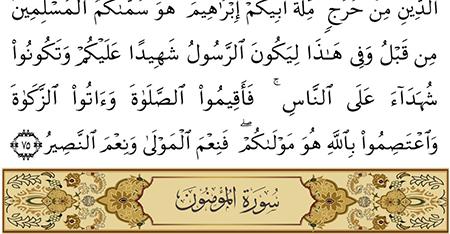 ٱلدِّينِ مِنْ حَرَجٍ ۚ مِّلَّةَ أَبِيكُمْ إِبْرَٰهِيمَ ۚ هُوَ سَمَّىٰكُمُ ٱلْمُسْلِمِينَ
مِن قَبْلُ وَفِى هَـٰذَا لِيَكُونَ ٱلرَّسُولُ شَهِيدًا عَلَيْكُمْ وَتَكُونُوا۟
شُهَدَآءَ عَلَى ٱلنَّاسِ ۚ فَأَقِيمُوا۟ ٱلصَّلَوٰةَ وَءَاتُوا۟ ٱلزَّكَوٰةَ
وَٱعْتَصِمُوا۟ بِٱللَّهِ هُوَ مَوْلَىٰكُمْ ۖ فَنِعْمَ ٱلْمَوْلَىٰ وَنِعْمَ ٱلنَّصِيرُ ٧٥
سُورَةُ المُؤْمِنُونَ